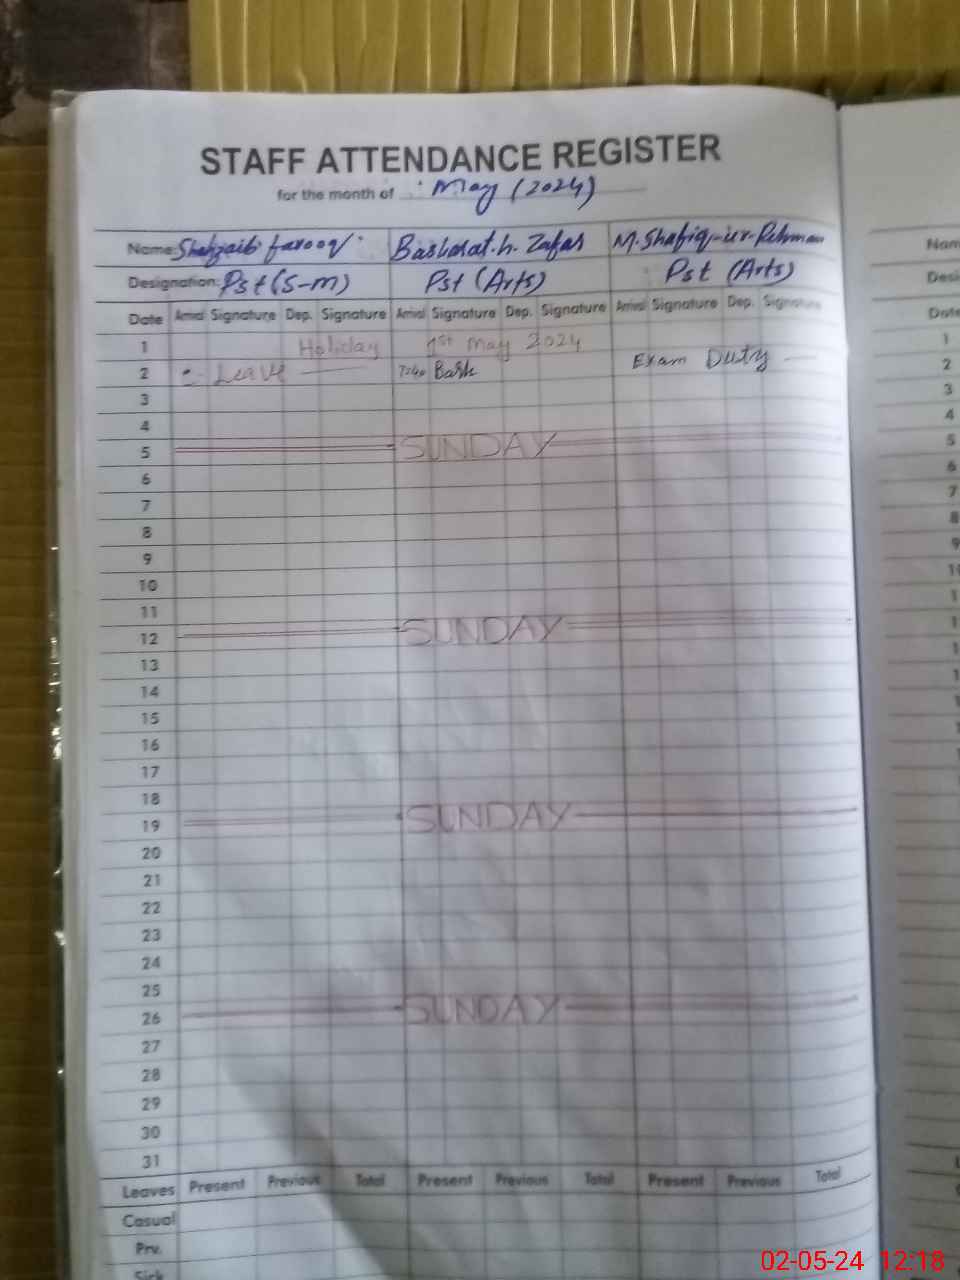 STAFF ATTENDANCE REGISTER
for the month of May (2024)
Name: Shahzaib farooq Basharat.h. Zafar M. Shafiq-ur-Rehman
Designation: Pst (S-m) Pst (Arts) Pst (Arts)
Date Arrival Signature Dep. Signature Arrival Signature Dep. Signature Arrival Signature Dep. Signature
1 Holiday 1st May 2024
2 Leave Bash Exam Duty
3
4
5 SUNDAY
6
7
8
9
10
11
12 SUNDAY
13
14
15
16
17
18
19 SUNDAY
20
21
22
23
24
25
26 SUNDAY
27
28
29
30
31
Leaves Present Previous Total Present Previous Total Present Previous Total
Casual
Prv.
Sick
Nam
Desi
Date
1
2
3
4
5
6
7
8
9
10
02-05-24 12:18